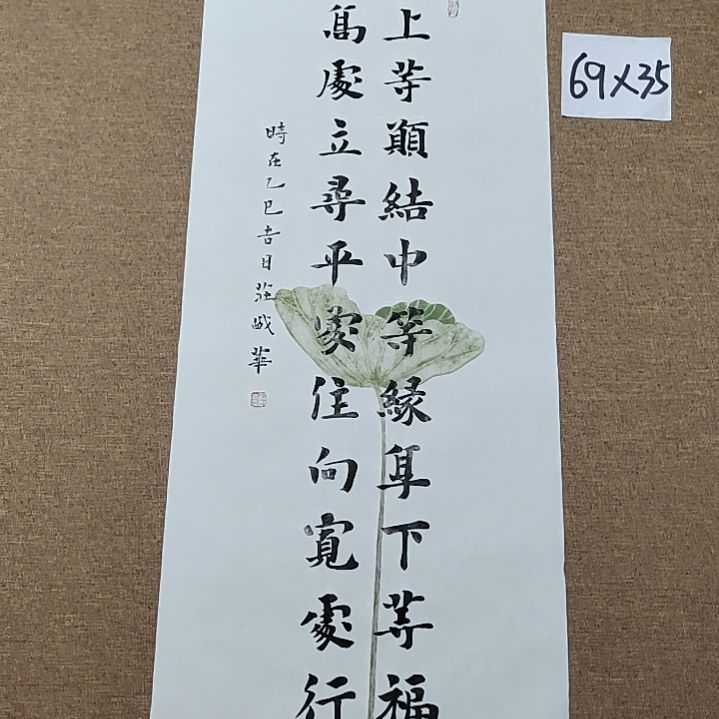 上等願結中等縁享下等福
髙處立尋平處住向寬處行
時在乙巳吉日莊盛華
69X35